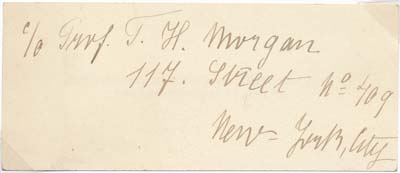 c/o Prof. T. H. Morgan
117. Street No 409
New-York, City